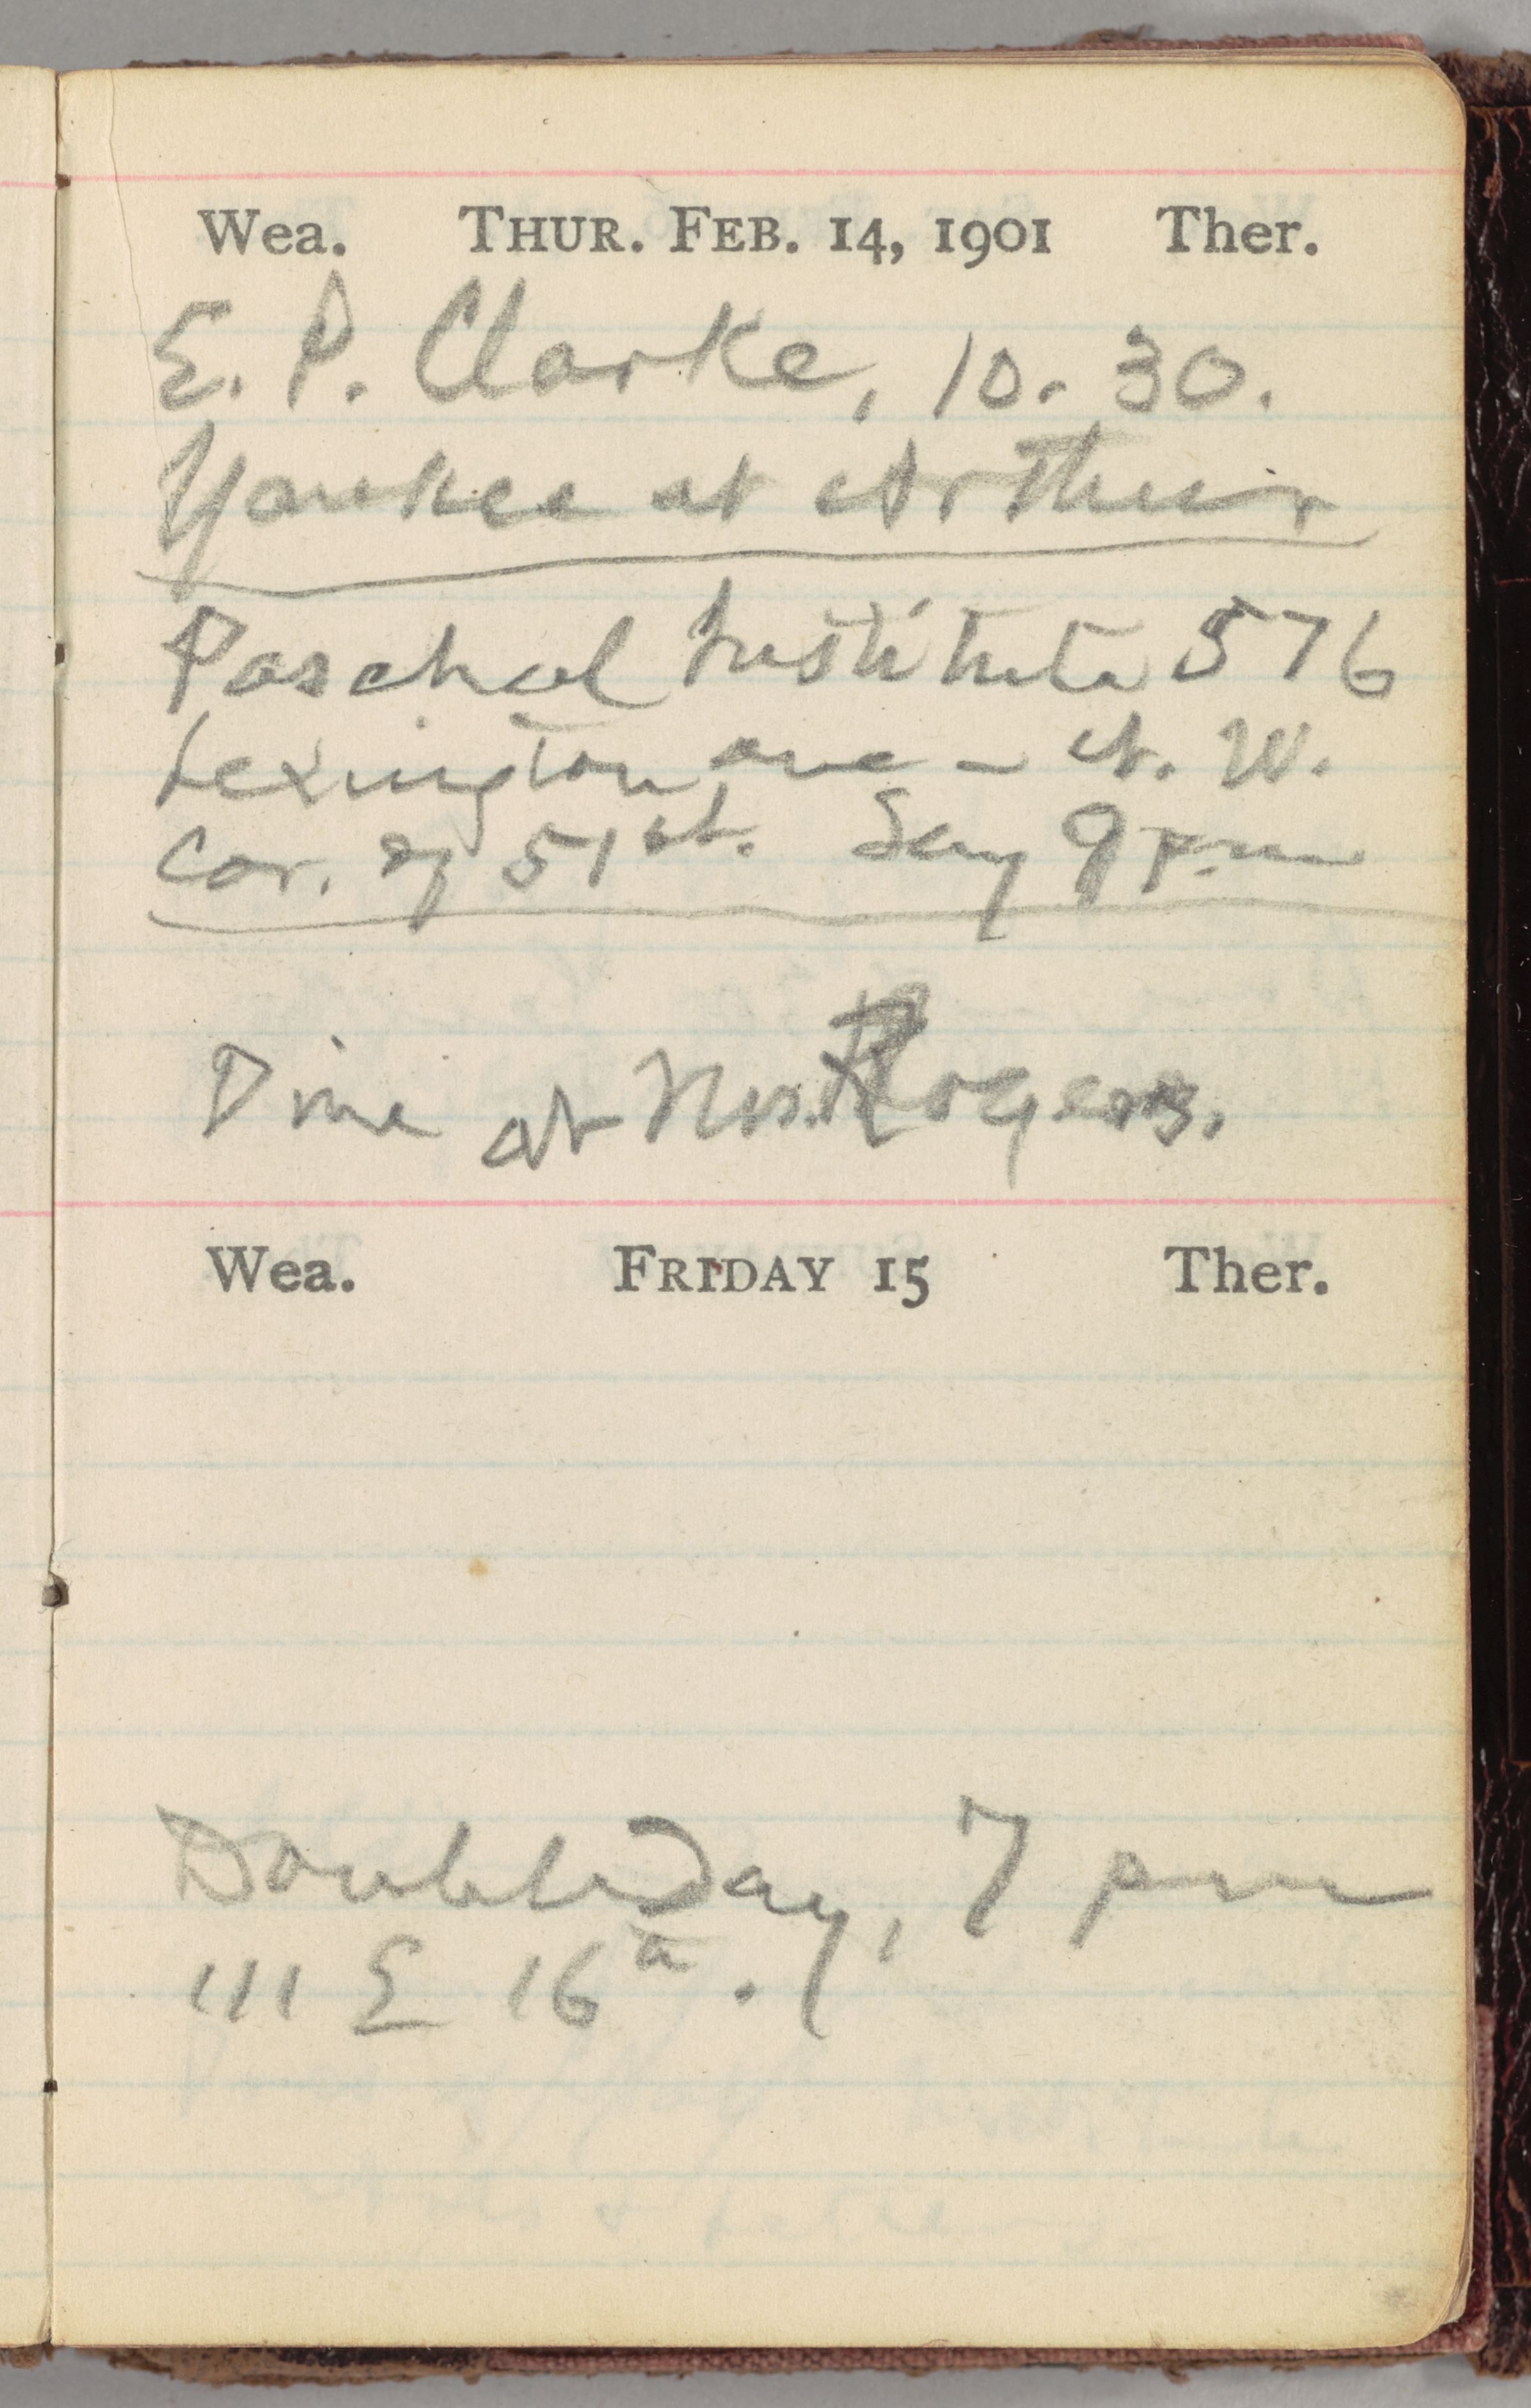 Wea. THUR. FEB. 14, 1901 Ther.
E. P. Clarke, 10.30.
Yankee at Arthur
Paschal Institute 576
Lexington ave – N. W.
cor. of 51st. Say 9 p.m
Dine at Mrs. Rogers.
Wea. FRIDAY 15 Ther.
Doubleday, 7 pm
111 E 16th.